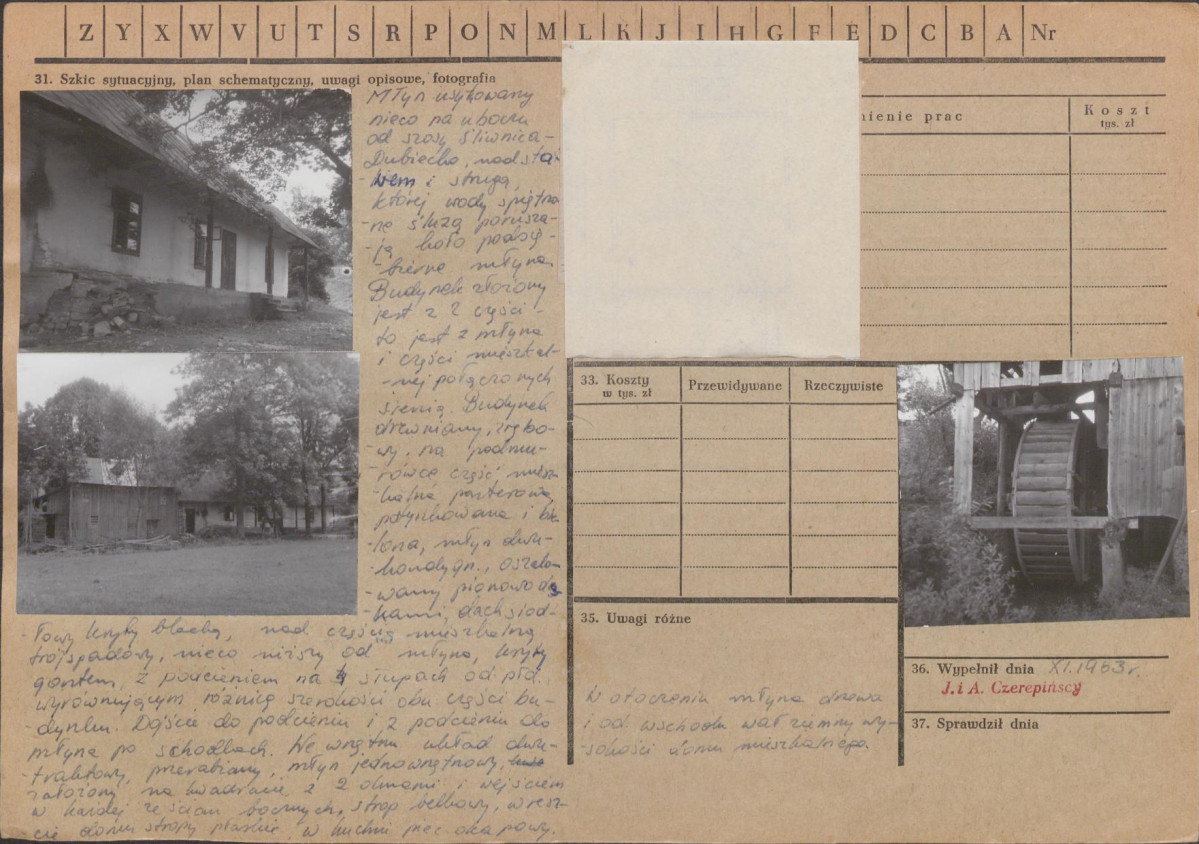 Z Y X W V U T S R P O N M L K J I H G F E D C B A Nr
31. Szkic sytuacyjny, plan schematyczny, uwagi opisowe, fotografia
Młyn usytuowany
nieco na uboczu
od szosy Śliwnica-
Dubiecko, nad sta-
-wem i strugą,
której wody spiętrzo-
-ne śluzą porusza-
-ją koło podsię-
-bierne młyna.
Budynek złożony
jest z 2 części -
to jest z młyna
i części mieszkal-
-nej połączonych
sienią. Budynek
drewniany, zrębo-
-wy, na podmu-
-rówce część miesz-
-kalna parterowa,
potynkowana i bie-
-lona, młyn dwu-
-kondygn., oszalo-
-wany pionowo des-
-kami, dach siod-
-łowy kryty blachą, nad częścią mieszkalną
trójspadowy, nieco niższy od młyna, kryty
gontem, z podcieniem na 4 słupach od płd.
wyrównującym różnicę szerokości obu części bu-
-dynku. Dojście do podcienia i z podcienia do
młyna po schodkach. We wnętrzu układ dwu-
-traktowy, przerabiany, młyn jednownętrzowy,
założony na kwadracie z 2 oknami i wejściem
w każdej ze ścian bocznych, strop belkowy, w resz-
cie domu stropy płaskie, w kuchni piec okapowy.
nienie prac
Koszt
tys. zł
33. Koszty
w tys. zł
Przewidywane
Rzeczywiste
35. Uwagi różne
W otoczeniu młyna drzewa
i od wschodu wał ziemny wy-
-sokości domu mieszkalnego.
36. Wypełnił dnia XI.1963r.
J. i A. Czerepińscy
37. Sprawdził dnia